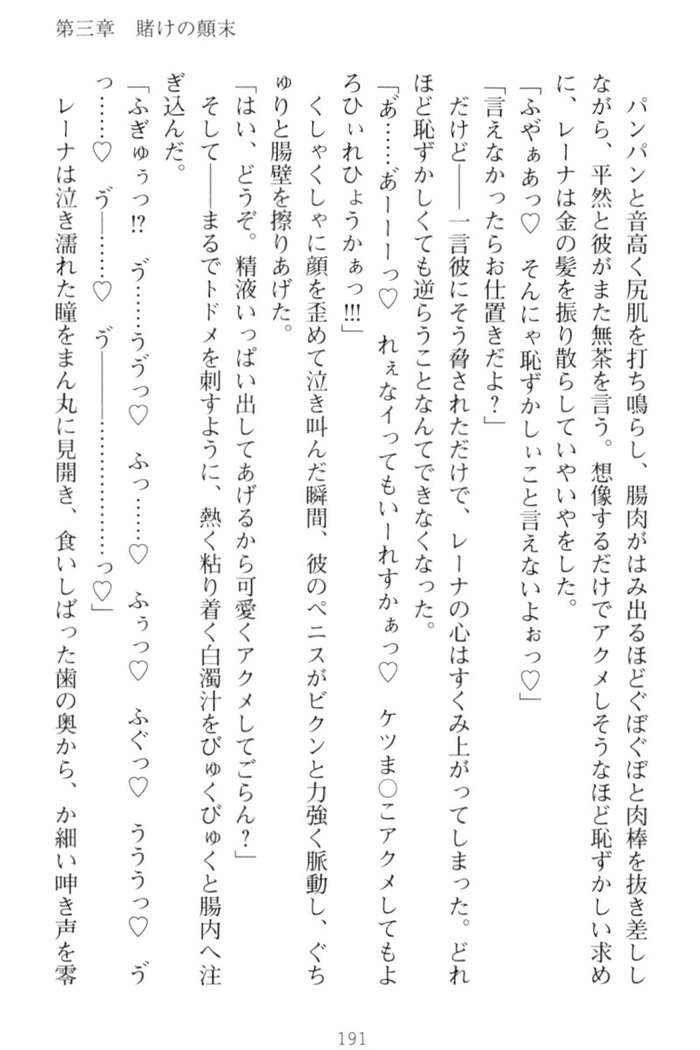 第三章　賭けの顛末
　パンパンと音高く尻肌を打ち鳴らし、腸肉がはみ出るほどぐぽぐぽと肉棒を抜き差しし
ながら、平然と彼がまた無茶を言う。想像するだけでアクメしそうなほど恥ずかしい求め
に、レーナは金の髪を振り散らしていやいやをした。
「ふやぁあっ♡　そんにゃ恥ずかしぃこと言えないよぉっ♡」
「言えなかったらお仕置きだよ？」
　だけど――一言彼にそう脅されただけで、レーナの心はすくみ上がってしまった。どれ
ほど恥ずかしくても逆らうことなんてできなくなった。
「あ゛……あ゛ーーーっ♡　れぇなイってもいーれすかぁっ♡　ケツま○こアクメしてもよ
ろひぃれひょうかぁっ!!!」
　くしゃくしゃに顔を歪めて泣き叫んだ瞬間、彼のペニスがビクンと力強く脈動し、ぐち
ゅりと腸壁を擦りあげた。
「はい、どうぞ。精液いっぱい出してあげるから可愛くアクメしてごらん？」
　そして――まるでトドメを刺すように、熱く粘り着く白濁汁をびゅくびゅくと腸内へ注
ぎ込んだ。
「ふぎゅぅっ!?　う゛……うう゛っ♡　ふっ……♡　ふぅっ♡　ふぐっ♡　うううっ♡　う゛
っ……♡　う゛――……♡　う゛――…………………っ♡」
　レーナは泣き濡れた瞳をまん丸に見開き、食いしばった歯の奥から、か細い呻き声を零
191